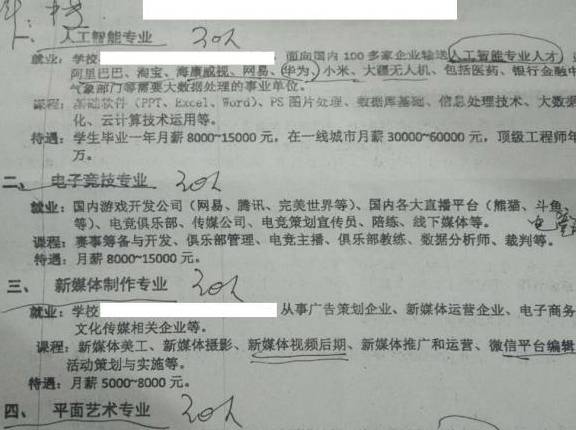 一、人工智能专业 30人
就业：学校 面向国内 100 多家企业输送人工智能专业人才
阿里巴巴、淘宝、海康威视、网易、华为、小米、大疆无人机、包括医药、银行金融中
气象部门等需要大数据处理的事业单位。
课程：基础软件（PPT、Excel、Word）、PS 图片处理、数据库基础、信息处理技术、大数据
化、云计算技术运用等。
待遇：学生毕业一年月薪 8000~15000 元，在一线城市月薪 30000~60000 元，顶级工程师年
万。
二、电子竞技专业 30人
就业：国内游戏开发公司（网易、腾讯、完美世界等）、国内各大直播平台（熊猫、斗鱼、
等）、电竞俱乐部、传媒公司、电竞策划宣传员、陪练、线下媒体等。
课程：赛事筹备与开发、俱乐部管理、电竞主播、俱乐部教练、数据分析师、裁判等。
待遇：月薪 8000~15000 元。
三、新媒体制作专业 30人
就业：学校 从事广告策划企业、新媒体运营企业、电子商务
文化传媒相关企业等。
课程：新媒体美工、新媒体摄影、新媒体视频后期、新媒体推广和运营、微信平台编辑
活动策划与实施等。
待遇：月薪 5000~8000 元。
四、平面艺术专业 30人